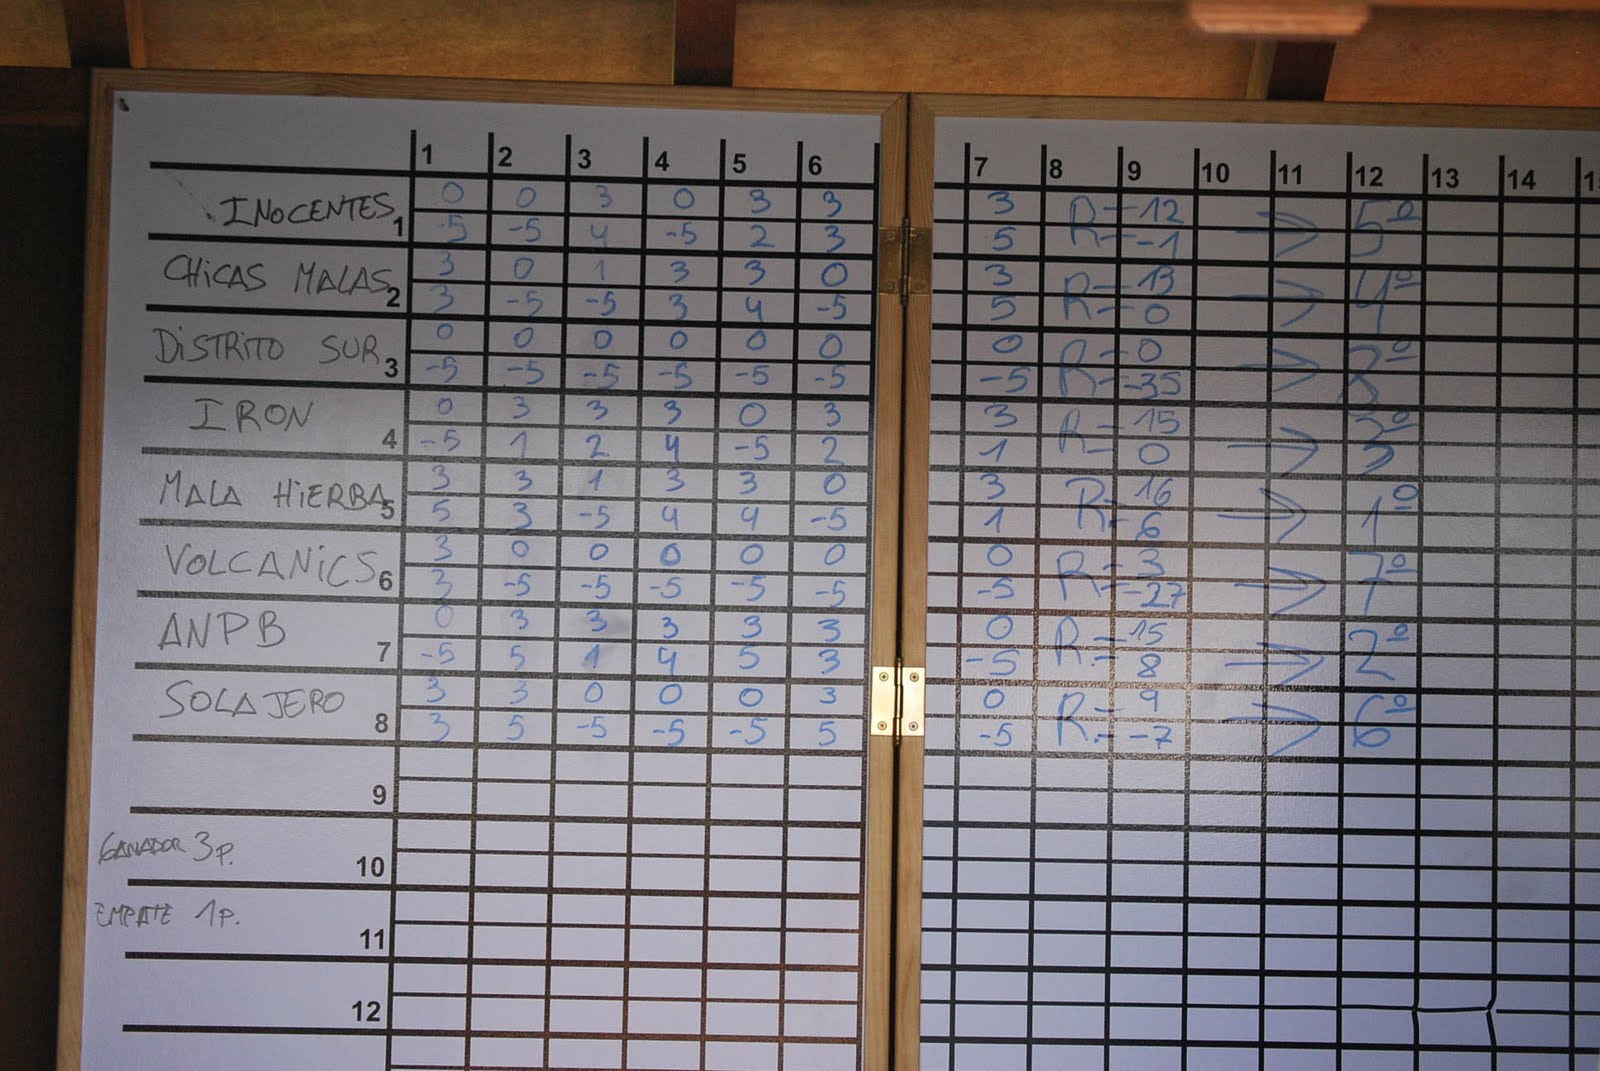 1 2 3 4 5 6 7 8 9 10 11 12 13 14
INOCENTES 1 0 0 3 0 3 3 3 R=12 → 5º
-5 -5 4 -5 2 3 5 R=-1
CHICAS MALAS 2 3 0 1 3 3 0 3 R=13 → 4º
3 -5 -5 3 4 -5 5 R=0
DISTRITO SUR 3 0 0 0 0 0 0 0 R=0 → 8º
-5 -5 -5 -5 -5 -5 -5 R=-35
IRON 4 0 3 3 3 0 3 3 R=15 → 3º
-5 1 2 4 -5 2 1 0
MALA HIERBA 5 3 3 1 3 3 0 3 R=16 → 1º
5 3 -5 4 4 -5 1 6
VOLCANICS 6 3 0 0 0 0 0 0 R=3 → 7º
3 -5 -5 -5 -5 -5 -5 -27
ANPB 7 0 3 3 3 3 3 0 R=15 → 2º
-5 5 1 4 5 3 -5 8
SOLAJERO 8 3 3 0 0 0 3 0 R=9 → 6º
3 5 -5 -5 -5 5 -5 -7
9
GANADOR 3P. 10
EMPATE 1P. 11
12